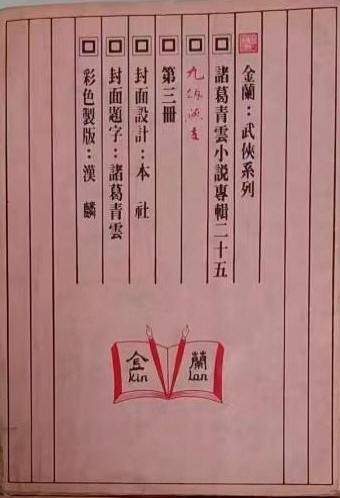 金蘭：武俠系列
諸葛青雲小説專輯二十五
第三冊
封面設計：本社
封面題字：諸葛青雲
彩色製版：漢麟
金 蘭
kin lan